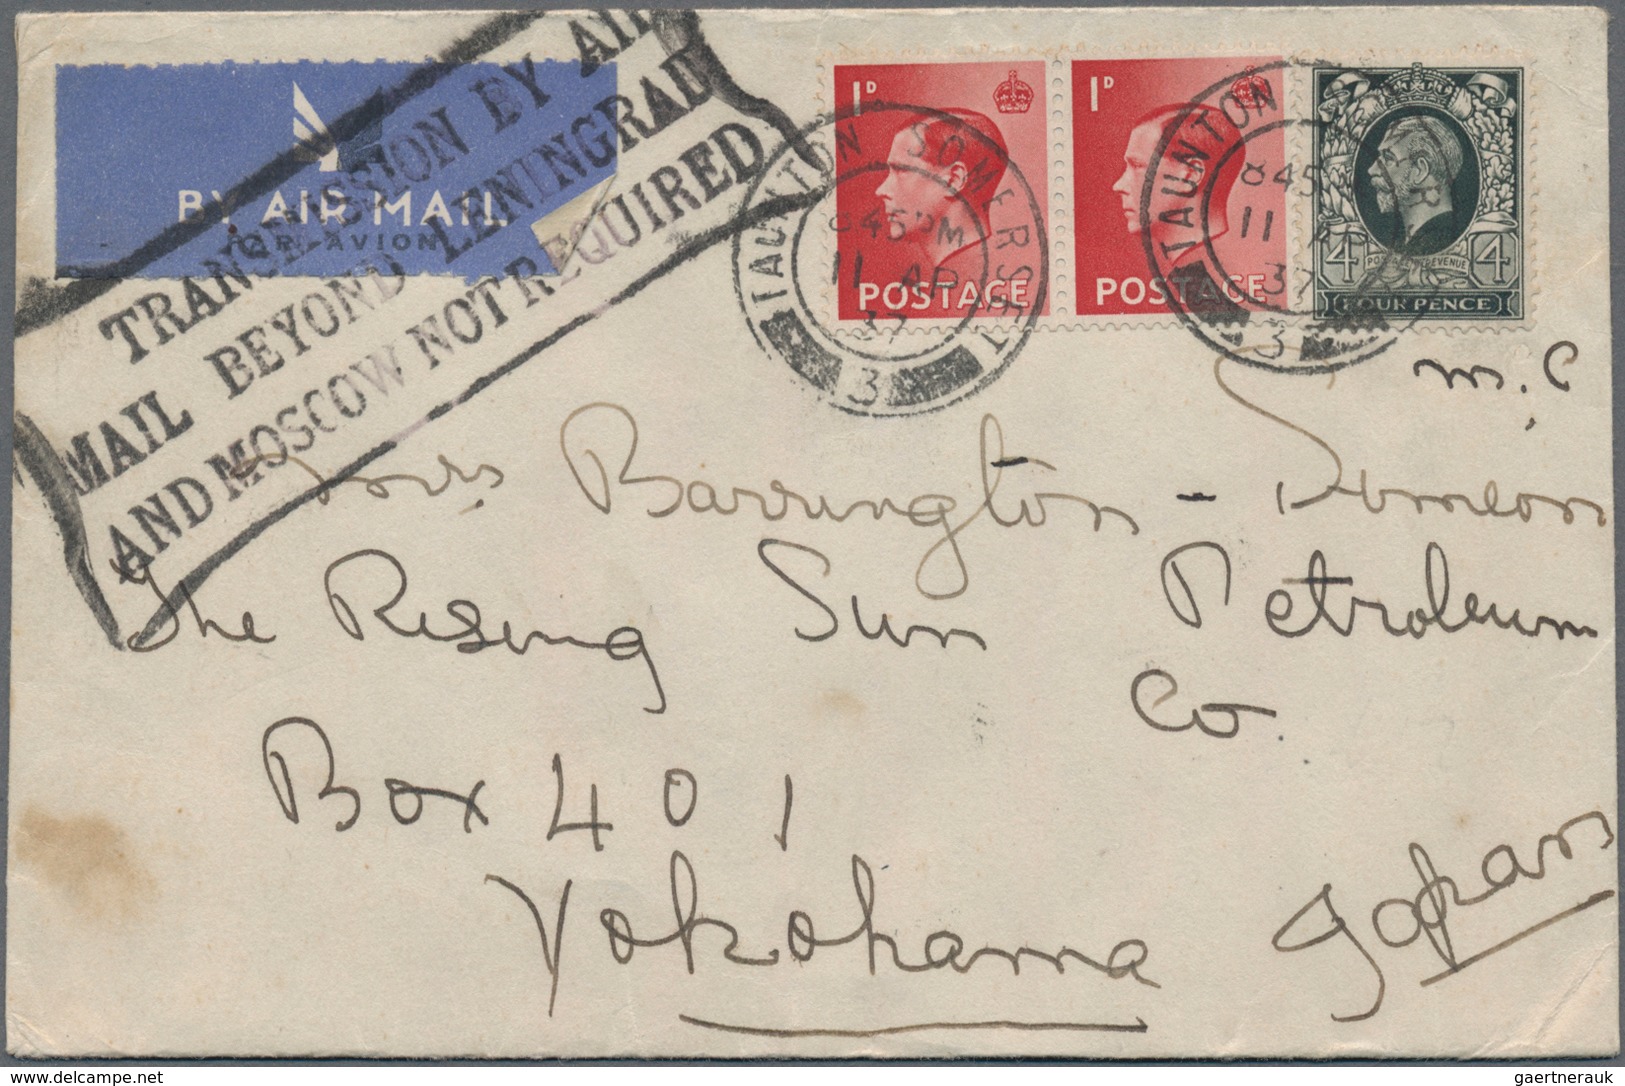 TRANSMISSION BY AIR
MAIL BEYOND LENINGRAD
AND MOSCOW NOT REQUIRED
BY AIR MAIL
PAR AVION
1D
POSTAGE
1D
POSTAGE
4 POSTAGE REVENUE 4
FOUR PENCE
TAUNTON SOMERSET
845PM
11 AP
37
3
TAUNTON
845
11 AP
37
3
M.C
Mrs Barrington - Simeon
The Rising Sun Petroleum
Co.
Box 401
Yokohama Japan
delcampe.net
gaertnerauk